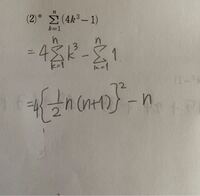 (2)* $\sum_{k=1}^{n}(4k^3-1)$
$=4\sum_{k=1}^{n}k^3-\sum_{k=1}^{n}1$
$=4\left\{\frac{1}{2}n(n+1)\right\}^2-n$